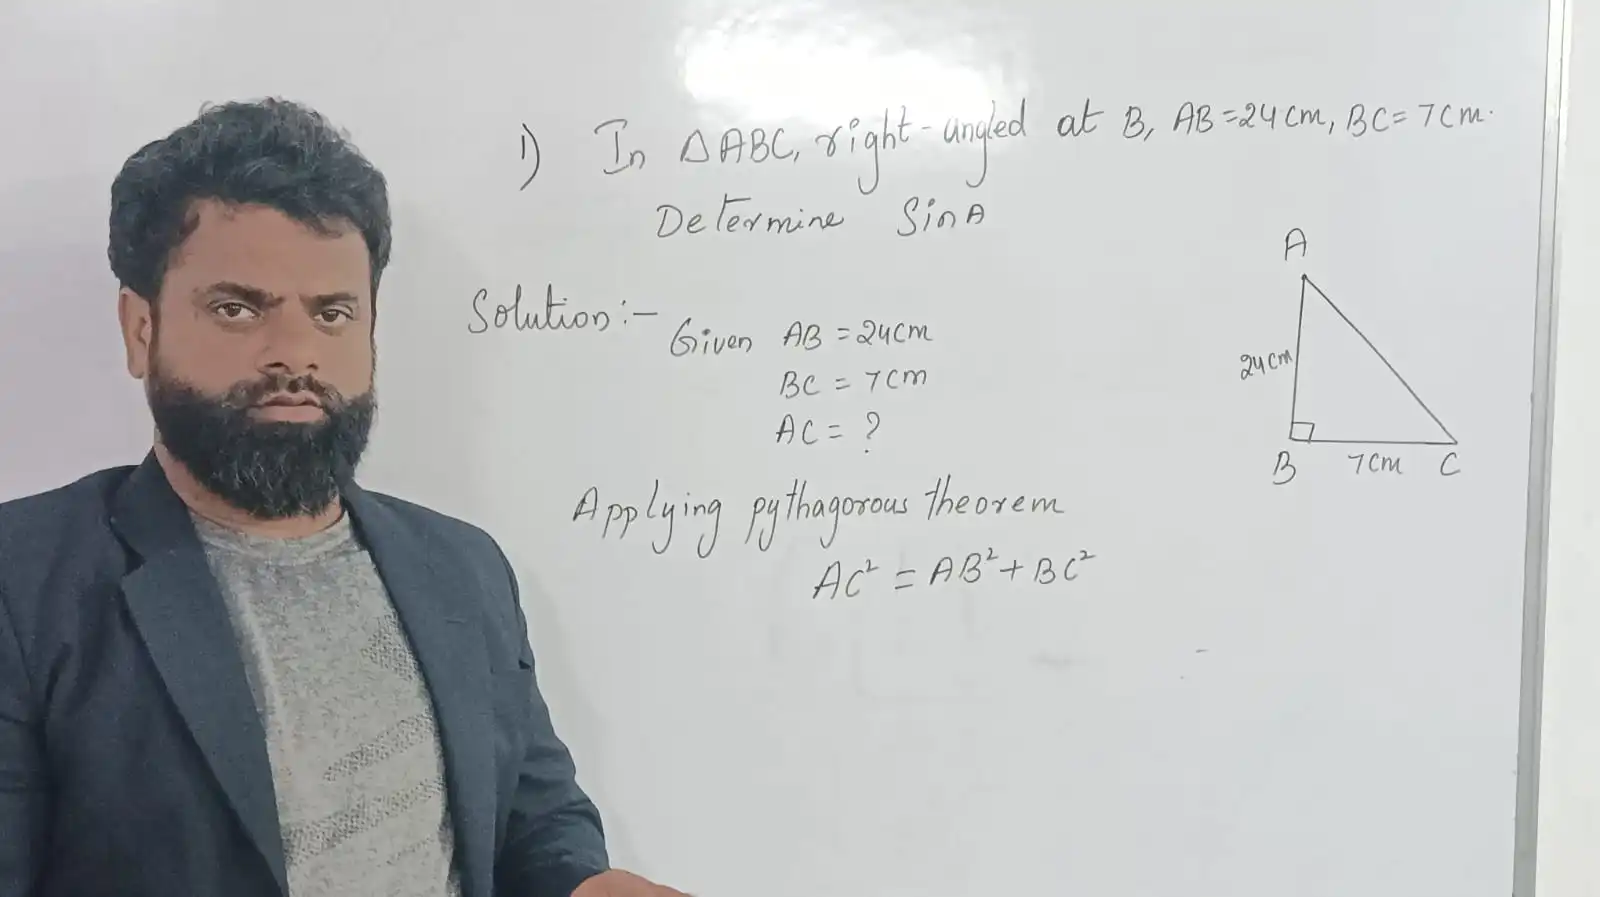 1) In △ABC, right-angled at B, AB=24cm, BC=7cm.
Determine SinA
Solution:-
Given AB = 24cm
BC = 7cm
AC = ?
Applying pythagorous theorem
AC² = AB² + BC²
A
24cm
B 7cm C